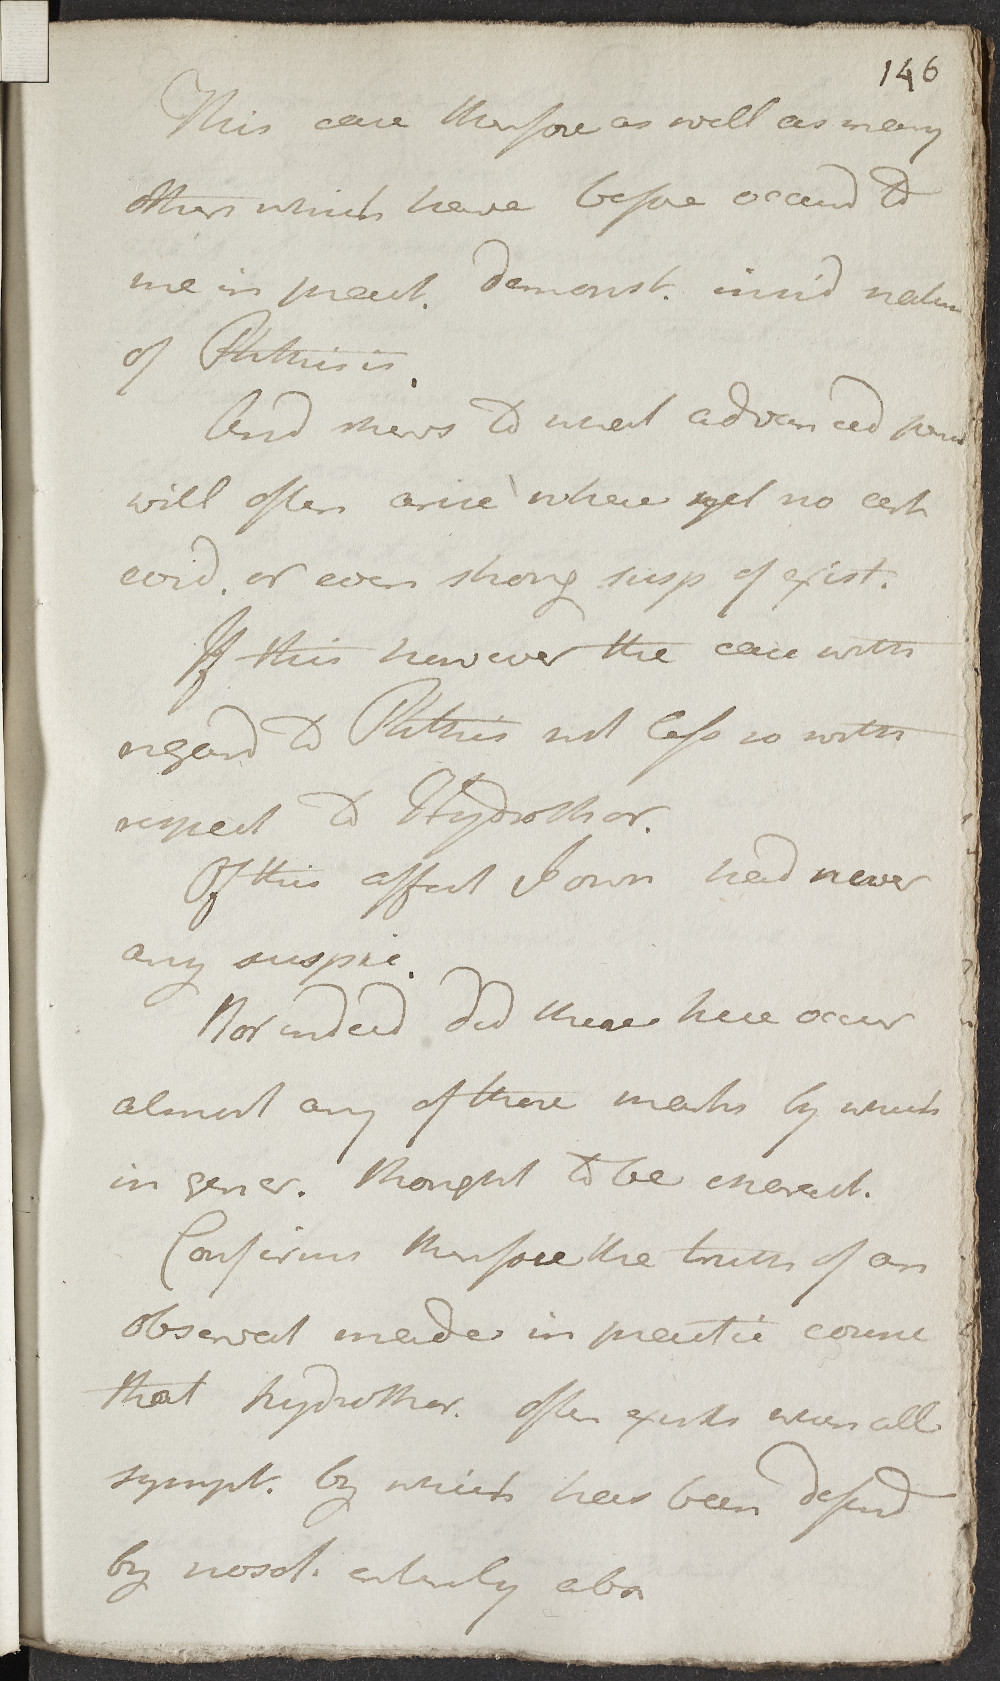 146
This case therfore as well as many
others which have before occurd to
me in pract. demonst. insid natur
of Phthisis.
And shews to what advanced
will often arise where yet no cert
evid. or even strong susp of exist.
If this however the case with
regard to Phthisis not less so with
respect to Hydrothor.
Of this affect I own had never
any suspic.
Nor indeed did there here occur
almost any of those marks by which
in gener. thought to be charact.
Confirms therfore the truth of an
observat made in practic course
that hydrothor. often exists when all
sympt. by which has been defind
by nosol. entirely abs